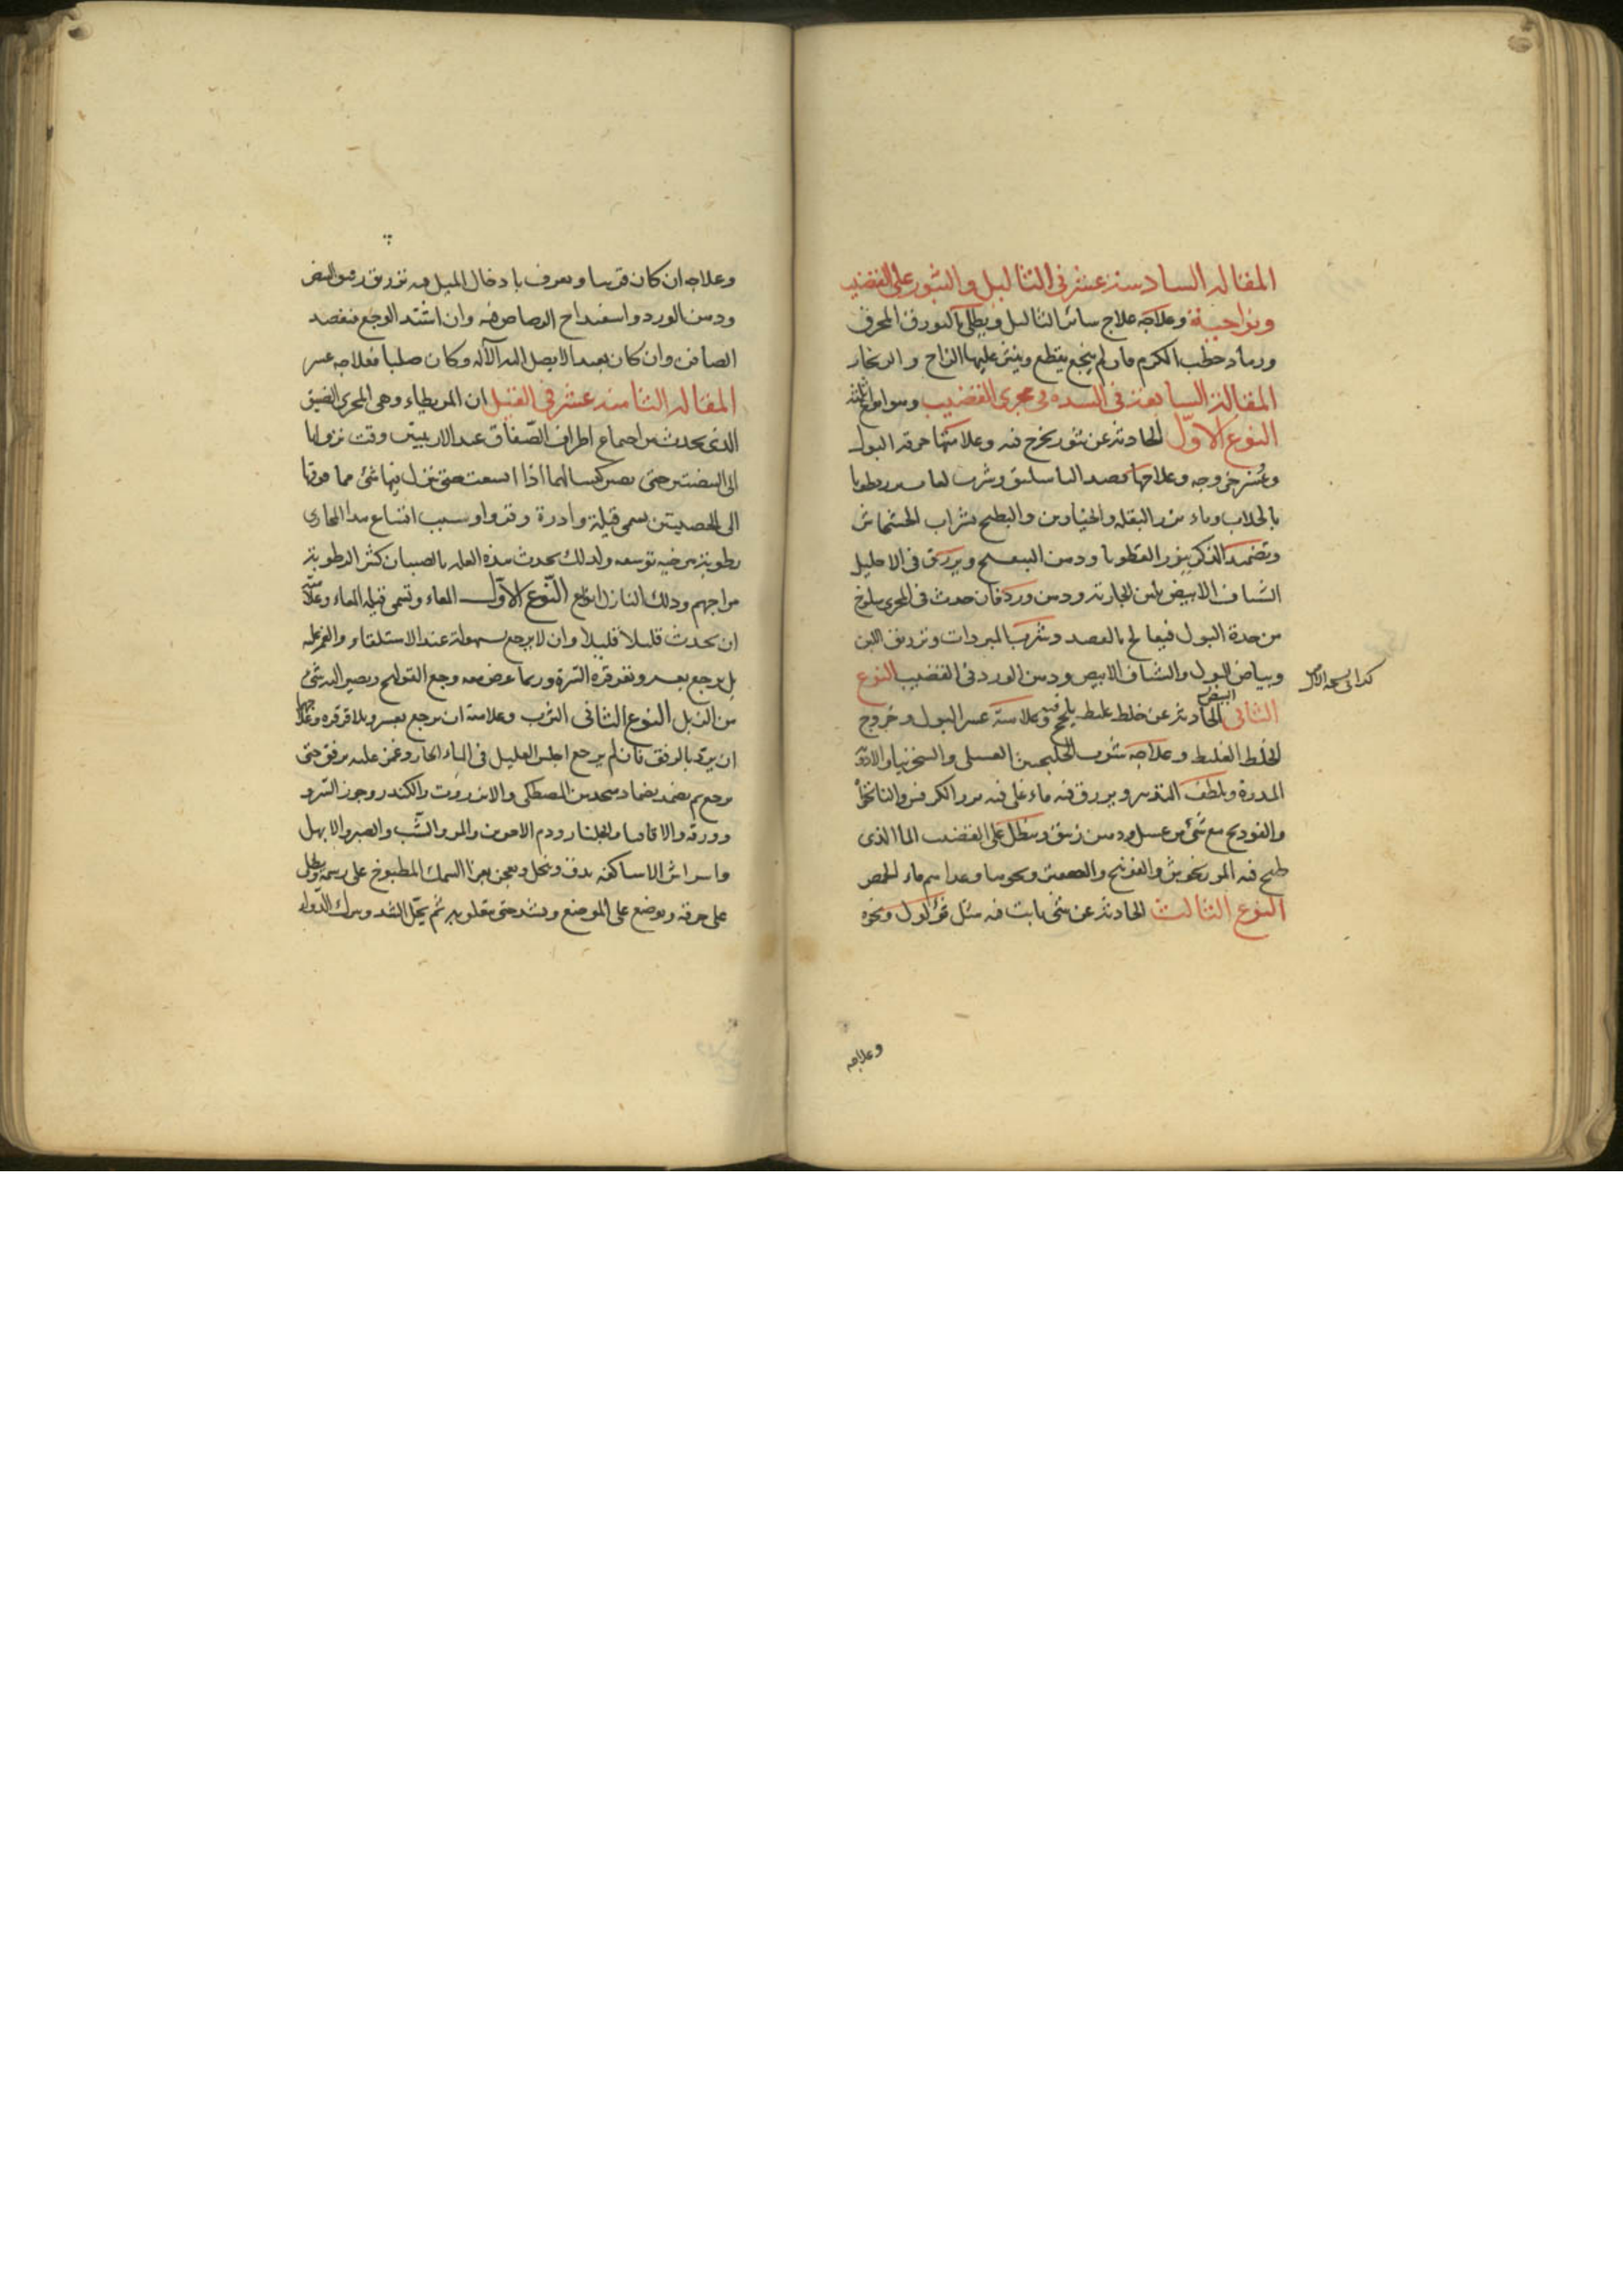 المقالة السادسة عشر فى الثاليل والبثور على القضيب
ونواحيه وعلاجه علاج سائر الثاليل ويطلى بالبورق المحرق
ورماد حطب الكرم فان لم ينجع يقطع وينثر عليها الزاج والزنجار
المقالة السابعة فى السدة فى مجرى القضيب وهو انواع ثلثة
النوع الاول الحادثة عن بثور يخرج فيه وعلامتها حرقة البول
وعسر خروجه وعلاجها فصد الباسليق وشرب لعاب بزرقطونا
بالجلاب وماء بزر البقلة والخيارين والبطيخ بشراب الخشخاش
وتضميد الذكر ببزر القطونا ودهن البنفسج ويزرق فى الاحليل
الشياف الابيض بلبن الجارية ودهن ورد فان حدث فى المجرى سلوخ
من حدة البول فيعالج بالفصد وشرب المبردات وتزريق اللبن
وبياض البيض والشياف الابيض ودهن الورد فى القضيب النوع
الثانى الحادثة عن خلط غليظ يلحج فيه وعلامته عسر البول وخروج
الخلط الغليظ وعلاجه شرب الخلنجبين العسلى والسنجزنيا والادوية
المدرة ويلطف التدبير ويزرق فيه ماء غلى فيه بزر الكرفس والنانخواه
والفودنج مع شئ من عسل ودهن زنبق وينطل على القضيب الما الذى
طبخ فيه المرزنجوش والفودنج والصعتر ونحوها وغذاهم ماء الحمص
النوع الثالث الحادثة عن شئ نابت فيه مثل ثؤلول ونحوه
وعلاجه
وعلاجه ان كان قريبا ويعرف بادخال الميل فيه تزريق رقيق البيض
ودهن الورد واسفيداج الرصاص فيه وان اشتد الوجع فيفصد
الصافن وان كان بعيدا لا يصل اليه الآلة وكان صلبا فعلاجه عسر
المقالة الثامنة عشر فى الفتيل ان المريطاء وهى المجرى الضيق
الذى يحدث من اجتماع اطراف الصفاق عند الاربيتين وقت نزولها
الى البيضتين حتى يصير كيسا لهما اذا اتسعت حتى نزل فيها شئ مما فوقها
الى الخصيتين يسمى قيلة وادرة وقروا وسبب اتساع هذا المجارى
رطوبة مرخية توسعه ولذلك يحدث هذه العلة بالصبيان كثيرا لرطوبة
مزاجهم وذلك النازل انواع النوع الاول المعاء وتسمى قيلة المعاء وعلامته
ان يحدث قليلا قليلا وان لا يرجع بسهولة عند الاستلقاء والغمز عليه
بل يرجع بعسر وبقرقرة السرة وربما عرض معه وجع القولنج ويصير اليه شئ
من الزبل النوع الثانى الثرب وعلامته ان يرجع بعسر وبلا قرقرة وعلاجها
ان يرد بالرفق فان لم يرجع اجلس العليل فى الماء الحار وغمز عليه برفق حتى
يرجع ثم يضمد بضماد متخذ من المصطكى والانزروت والكندر وجوز السرو
وورقه والاقاقيا والجلنار ودم الاخوين والمر والشب والصبر والابهل
واسراش الاساكفة يدق وينخل ويعجن بغرا السمك المطبوخ على رسمه ويطلى
على خرقة ويوضع على الموضع ويشد حتى يقلو به ثم يحل الشد ويترك الدواء